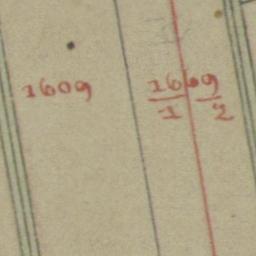 1609 1609
1 2